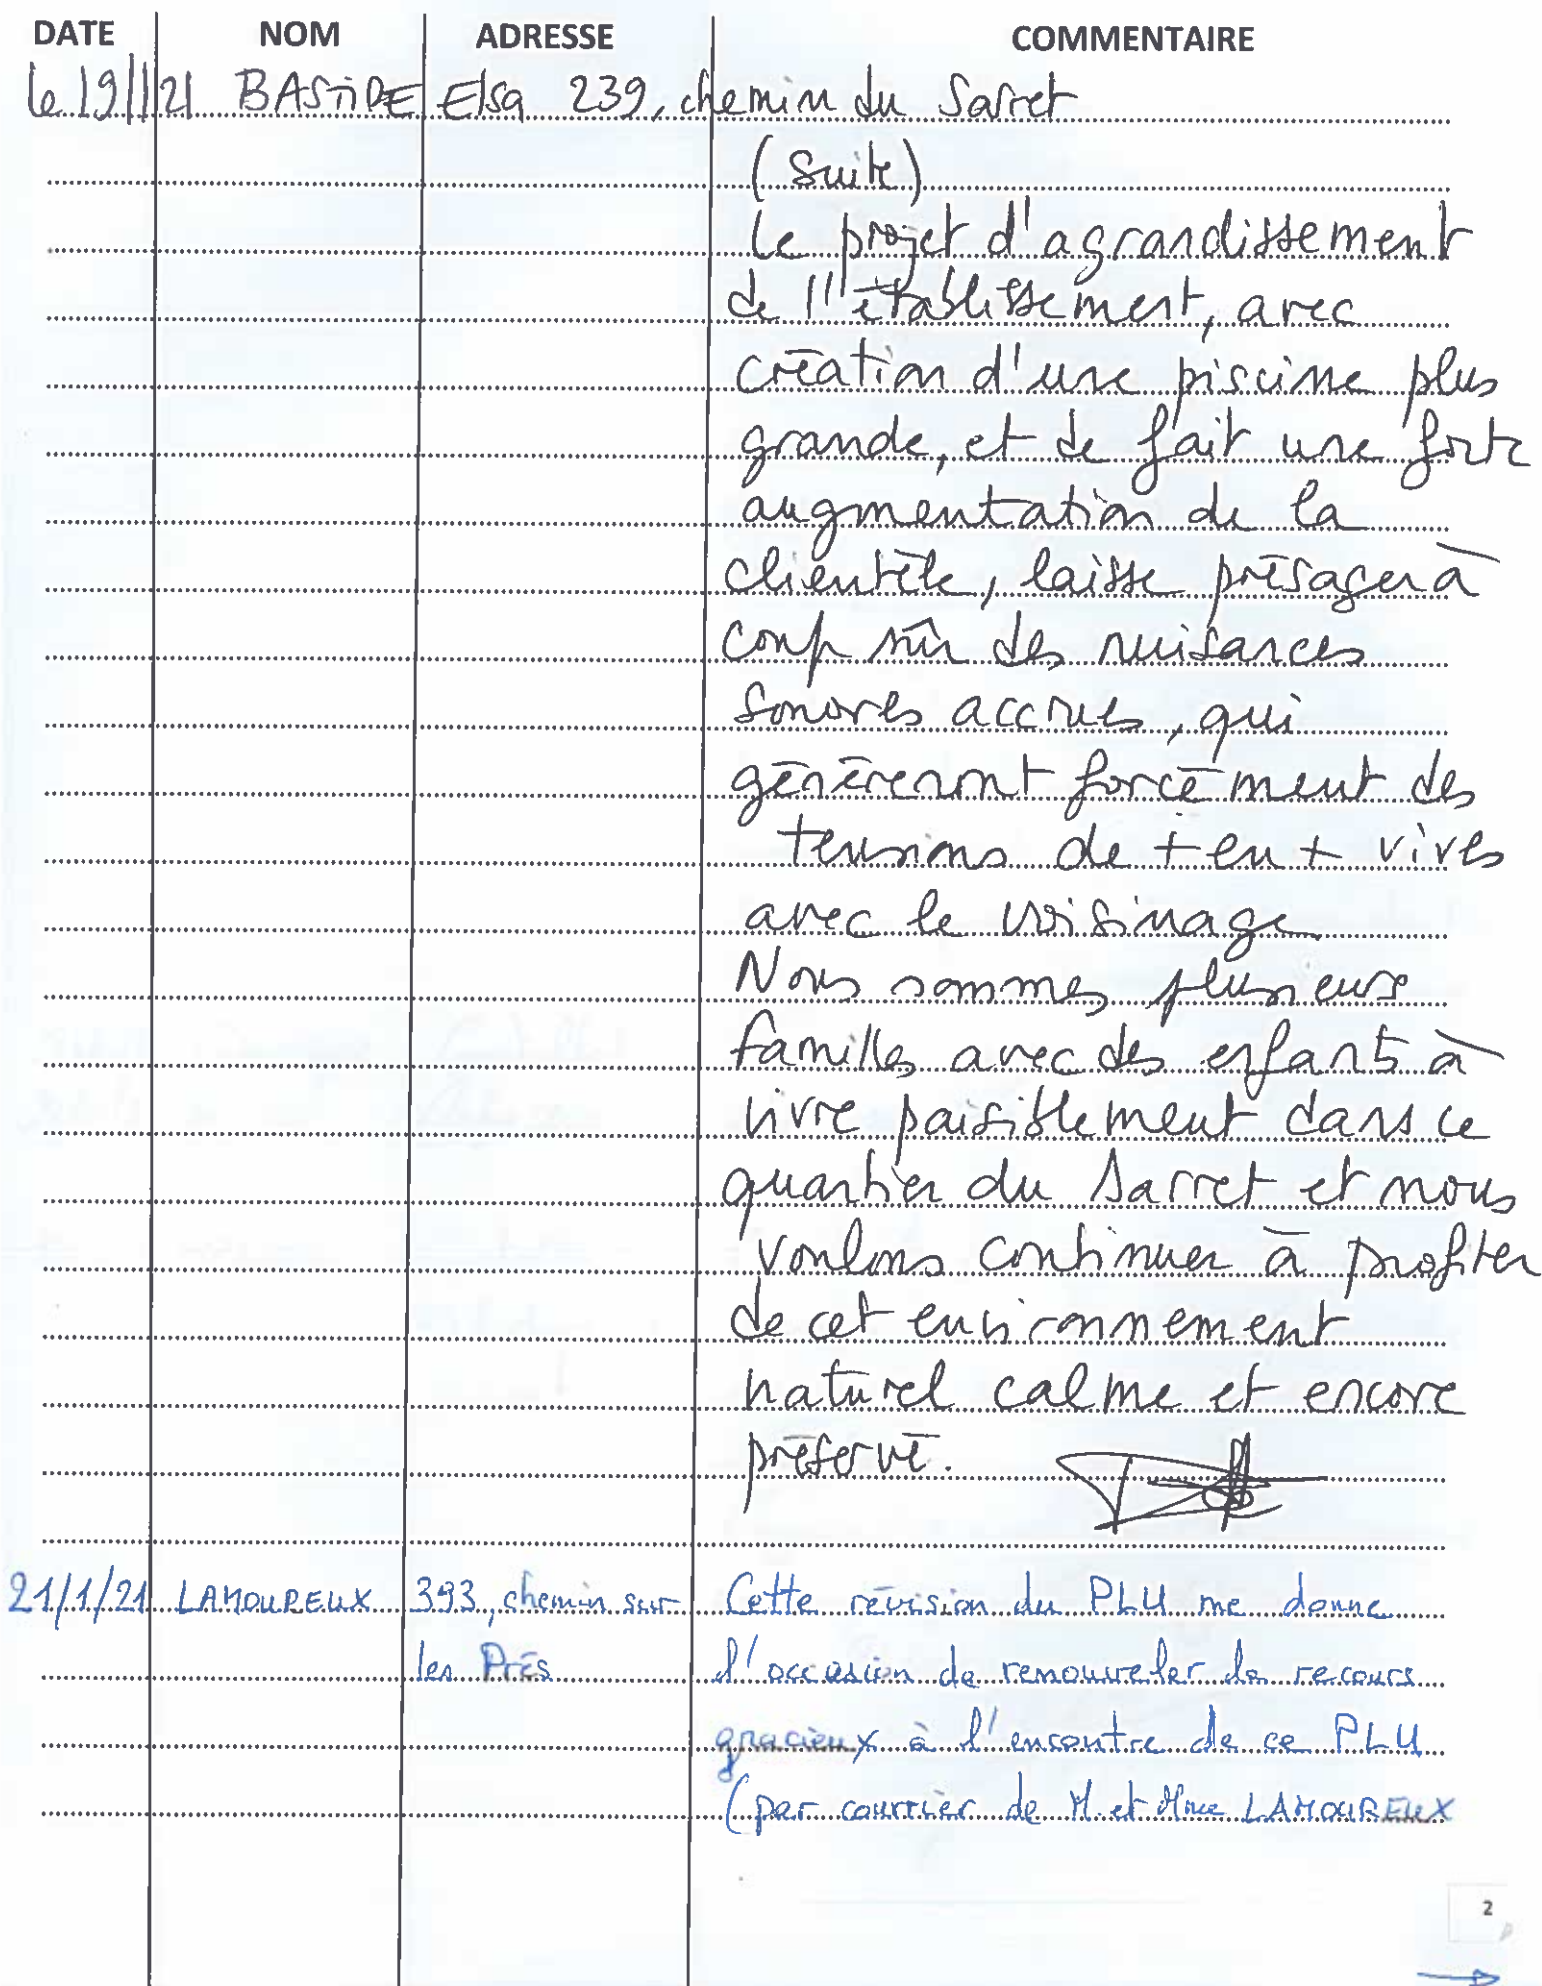 DATE NOM ADRESSE COMMENTAIRE
le 19/1/21 BASTIDE Elsa 239, chemin du Sarret
(Suite)
Le projet d'agrandissement
de l'établissement, avec
création d'une piscine plus
grande, et de fait une forte
augmentation de la
clientèle, laisse présager à
coup sûr des nuisances
sonores accrues, qui
généreront forcément des
tensions de + en + vives
avec le voisinage
Nous sommes plusieurs
familles avec des enfants à
vivre paisiblement dans ce
quartier du Sarret et nous
voulons continuer à profiter
de cet environnement
naturel calme et encore
préservé.
21/1/21 LAMOUREUX 393, chemin sur Cette révision du PLU me donne
les Près l'occasion de renouveler le recours
gracieux à l'encontre de ce PLU
(par courrier de M. et Mme LAMOUREUX
2